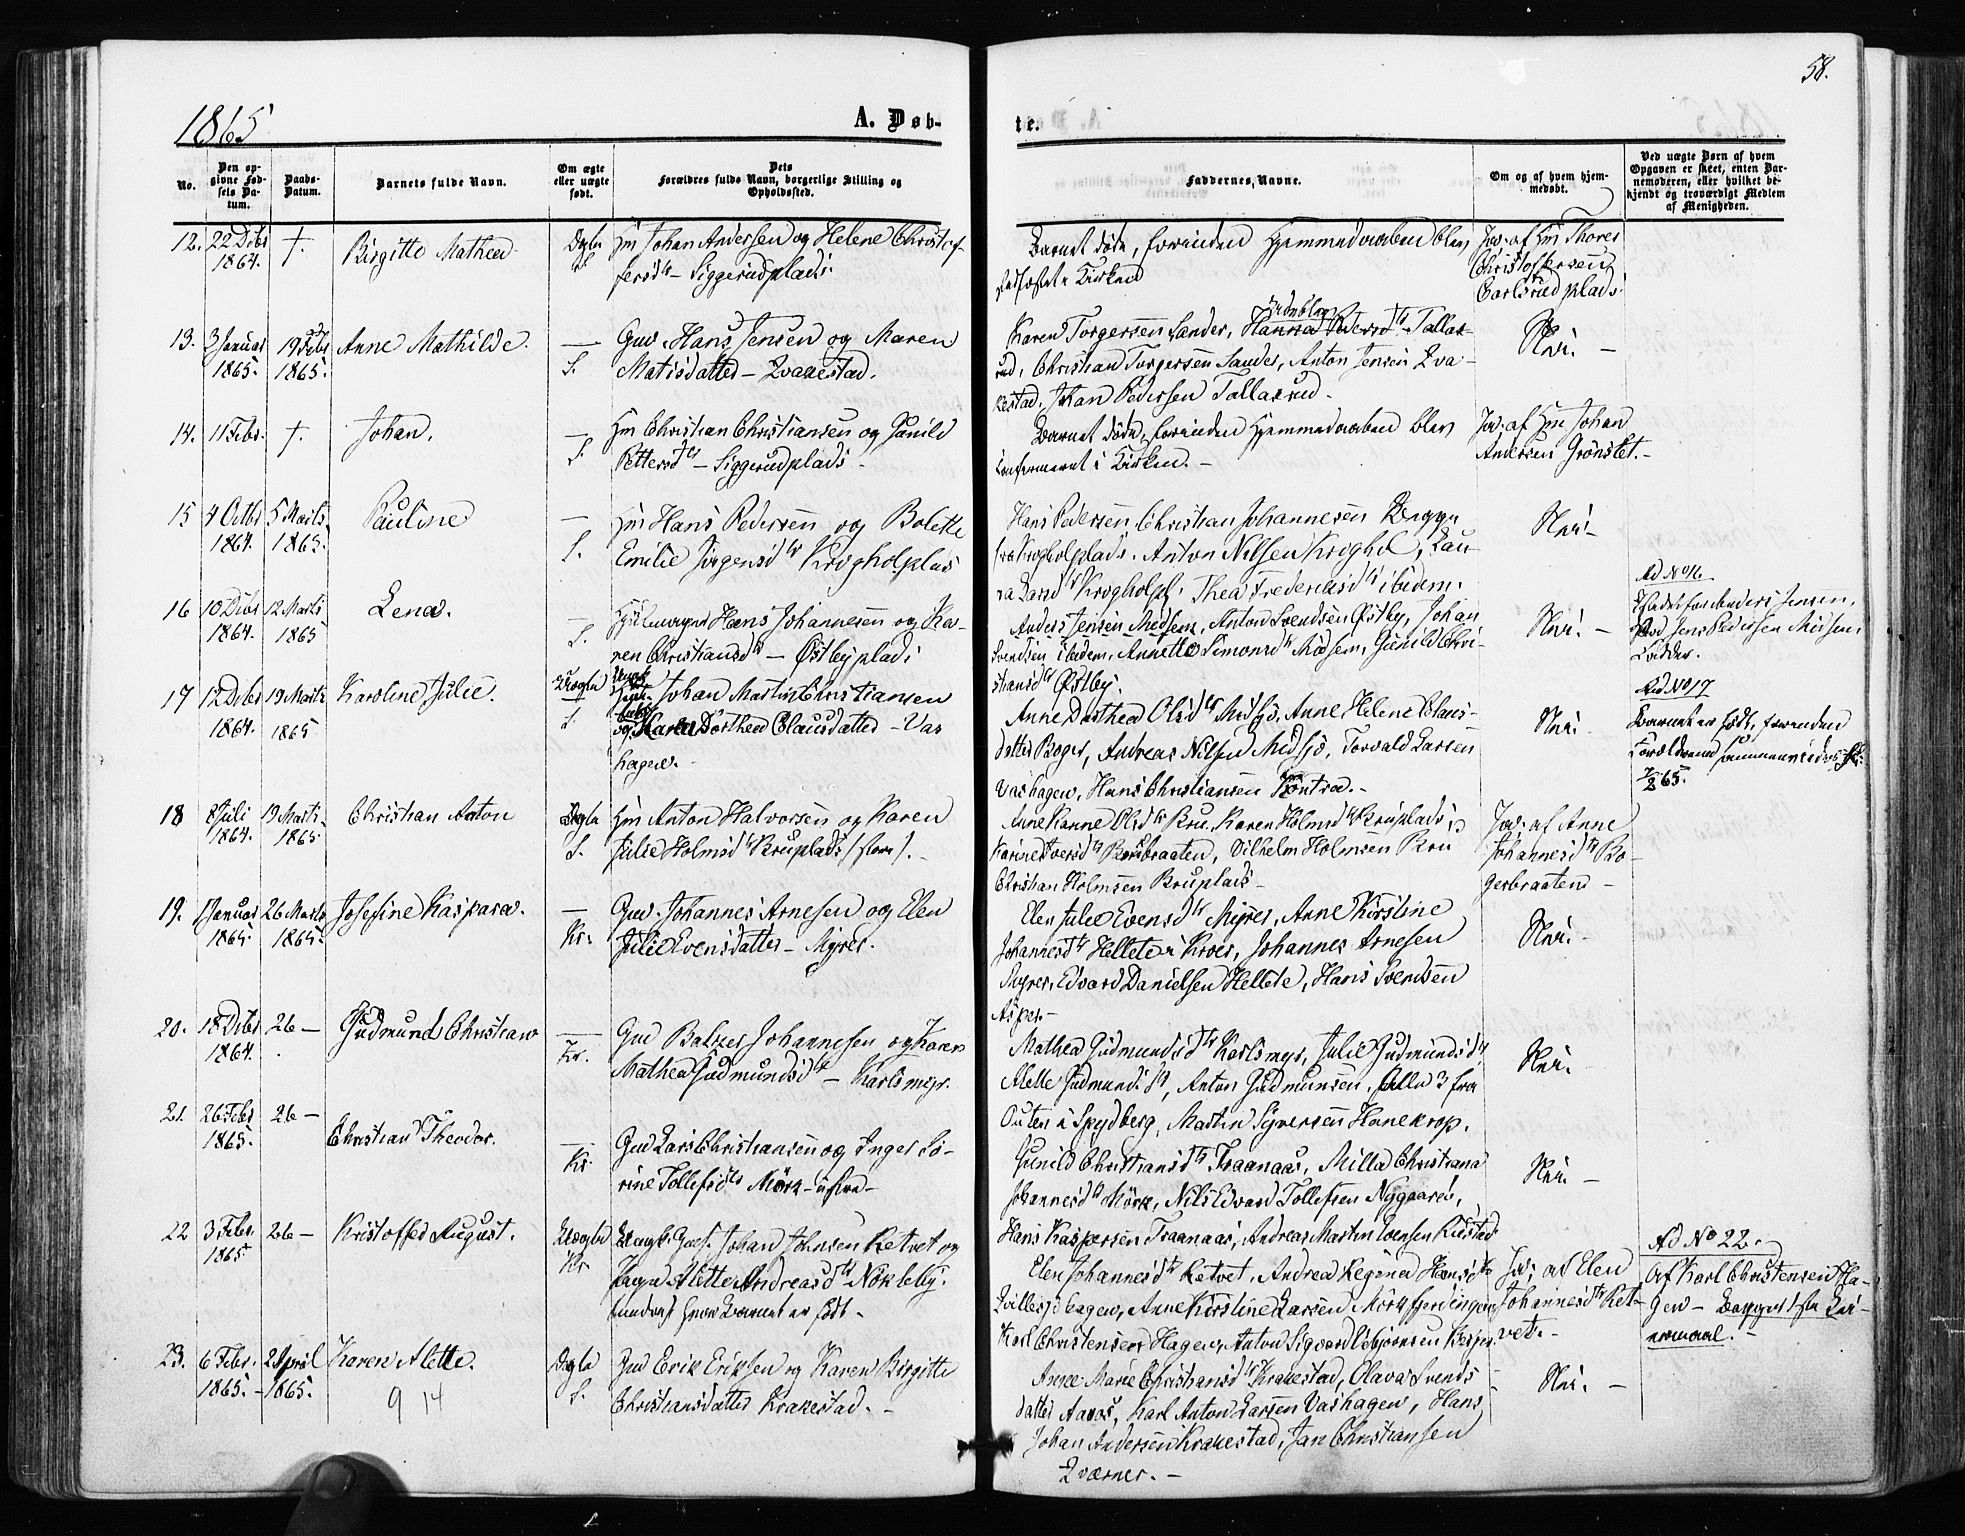 58.
1865
A. Døb-
te.
No.
Den op-
givne Fød-
sels Da-
tum.
Daabs-
Datum.
Barnets fulde Navn.
Om ægte
eller uægte
født.
Dets
Forældres fulde Navn, borgerlige Stilling og
Opholdssted.
Faddernes Navne.
Om og af hvem hjem-
medøbt.
Ved uægte Børn af hvem
Opgaven er skeet, enten Bar-
nemoderen, eller hvilket be-
kjendt og troværdigt Medlem
af Menigheden.
12. 22 Debr 1864. † Birgitte Mathea
Johan Andersen og Helene Christof-
fersdtr – Siggerudplads.
Barnet døde, forinden Hjemmedaaben blev
stadfæstet i Kirken
Ja; af Hm Thorer
Christoffersen
Carlsrudplads
13. 3 Januar 1865. 19 Febr 1865. Anne Mathilde.
— S.
Gmd Hans Jensen og Maren
Matisdatter – Kvakestad.
Karen Torgersen Sander, Hanna Pedersdtr Tallax-
rud, Christian Torgersen Sander, Anton Jensen Kva-
kestad, Johan Pedersen Tallaxrud.
Nei. –
14. 11 Febr. † Johan.
— S.
Hm Christian Christiansen og Gunild
Pettersdtr – Siggerudplads –
Barnet døde, forinden Hjemmedaaben blev
confirmeret i Kirken. –
Ja; af Hm Johan
Andersen Grønslet. –
15 4 Octbr 1864. 5 Marts 1865. Pauline
— S.
Hm Hans Pedersen og Bolette
Emilie Jørgensdtr Krogholplds
Hans Pedersen, Christian Johannesen
fra Krogholplads. Anton Nilsen Kroghol, Lau-
ra Larsdtr Krogholpl. Thea Frederiksdtr ibidem.
Nei –
16 10 Debr 1864. 12 Marts 1865 Lena.
— S.
Hans Johannesen og Ka-
ren Christiansdtr – Østbyplads
Anders Jensen Midsem, Anton Svendsen Østby, Johan
Svendsen ibidem, Annette Simonsdtr Mosem, Gunild Chri-
stiansdtr Østby.
Nei. –
Ad No 16
Istedetfor Anders Jensen,
stod Jens Pedersen Midsem
Fadder.
17 12 Debr 1864. 19 Marts 1865 Karoline Julie.
Uægte S.
Johan Martin Christiansen
og Karen Dorthea Clausdatter – Vas
hagen.
Anne Dorthea Olsdtr Midsjø, Anne Helene Claus-
datter Boger, Andreas Nilsen Midsjø, Torvald Larsen
Vashagen, Hans Christiansen Kontra. –
Nei.
Ad No 17
Barnet er født, forinden
Forældrene sammenviedes
65.
18 8 Juli 1864. 19 Marts 1865. Christian Anton
Ægte S.
Hm Anton Halvorsen og Karen
Julie Holmsdtr Bruplads (store). –
Anne Karine Olsdtr Bru. Karen Holmsdtr Bruplads,
Karine Iversdtr Bogerbraaten, Vilhelm Holmsen Bru
Christian Holmsen Bruplads –
Ja; af Anne
Johannesdtr Bo-
gerbraaten –
19. 1 Januar 1865. 26 Marts 1865. Josefine Kaspara.
— Kr.
Gmd. Johannes Arnesen og Elen
Julie Evensdatter – Myrer.
Elen Julie Evensdtr Myrer, Anne Kirstine
Johannesdtr Hellete i Kroer, Johannes Arnesen
Myrer, Edvard Danielsen Hellete, Hans Svendsen
Asper –
Nei. –
20. 18 Debr 1864. 26 — Gudmund Christian
— Kr.
Gmd Balzer Johannesen og Karen
Mathea Gudmundsdtr – Karlsmyr.
Mathea Gudmundsdtr Karlsmyr, Julie Gudmundsdtr,
Alette Gudmundsdtr, Anton Gudmunsen, alle 3 fra
Outen i Spydberg, Martin Syversen Hanekrop.
Nei. –
21. 26 Febr 1865. 26 — Christian Theodor.
— Kr.
Gmd Lars Christiansen og Inger So-
rine Tollefsdtr Mørk –
Gunild Christiansdtr Fraanaas, Milla Christiana
Johannesdtr Mørk, Nils Edvard Tollefsen Nygaard,
Hans Kaspersen Fraanaas, Andreas Martin Evensen Rustad
Nei. –
22 3 Febr. 1865 26 — Kristoffer August.
Uægte Kr.
Johan Johnsen Retvet og
Alette Andreasdtr Nordby.
hvor Barnet er født –
Elen Johannesdtr Retvet, Andrea Regina Hansdtr
hagen, Anne Kirstine Larsen Mørkfjerdingen
Karl Christensen Hagen, Anton Sigvard
Ja; af Elen
Johannesdtr Ret-
vet. –
Ad No 22.
Af Karl Christensen Ha-
gen –
23. 6 Febr. 1865. – 2 April 1865. Karen Alette.
9 14
Ægte S.
Gmd Erik Eriksen og Karen Birgitte
Christiansdatter Krakestad. –
Anne Marie Christiansdtr Krakestad, Olava Svends
datter Aaros, Karl Anton Larsen Vashagen, Hans
Johan Andersen Krakestad, Jan Christiansen
Kværner. –
Nei. –